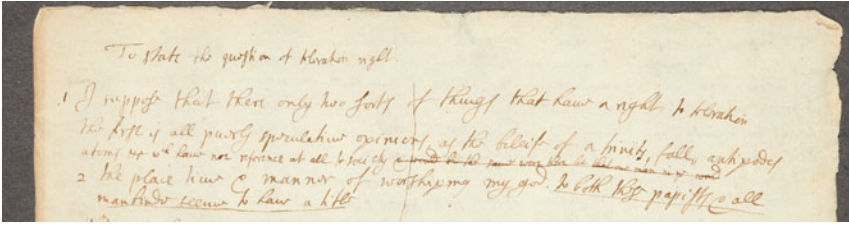 To state the question of toleration right.
1 I suppose that there only two sorts of things that have a right to toleration
the first is all purely speculative opinions as the beleife of a trinity, fall, antipodes
atoms &c wch have noe reference at all to society
2 the place time & manner of worshiping my god. to both these papists & all
mankinde seeme to have a title